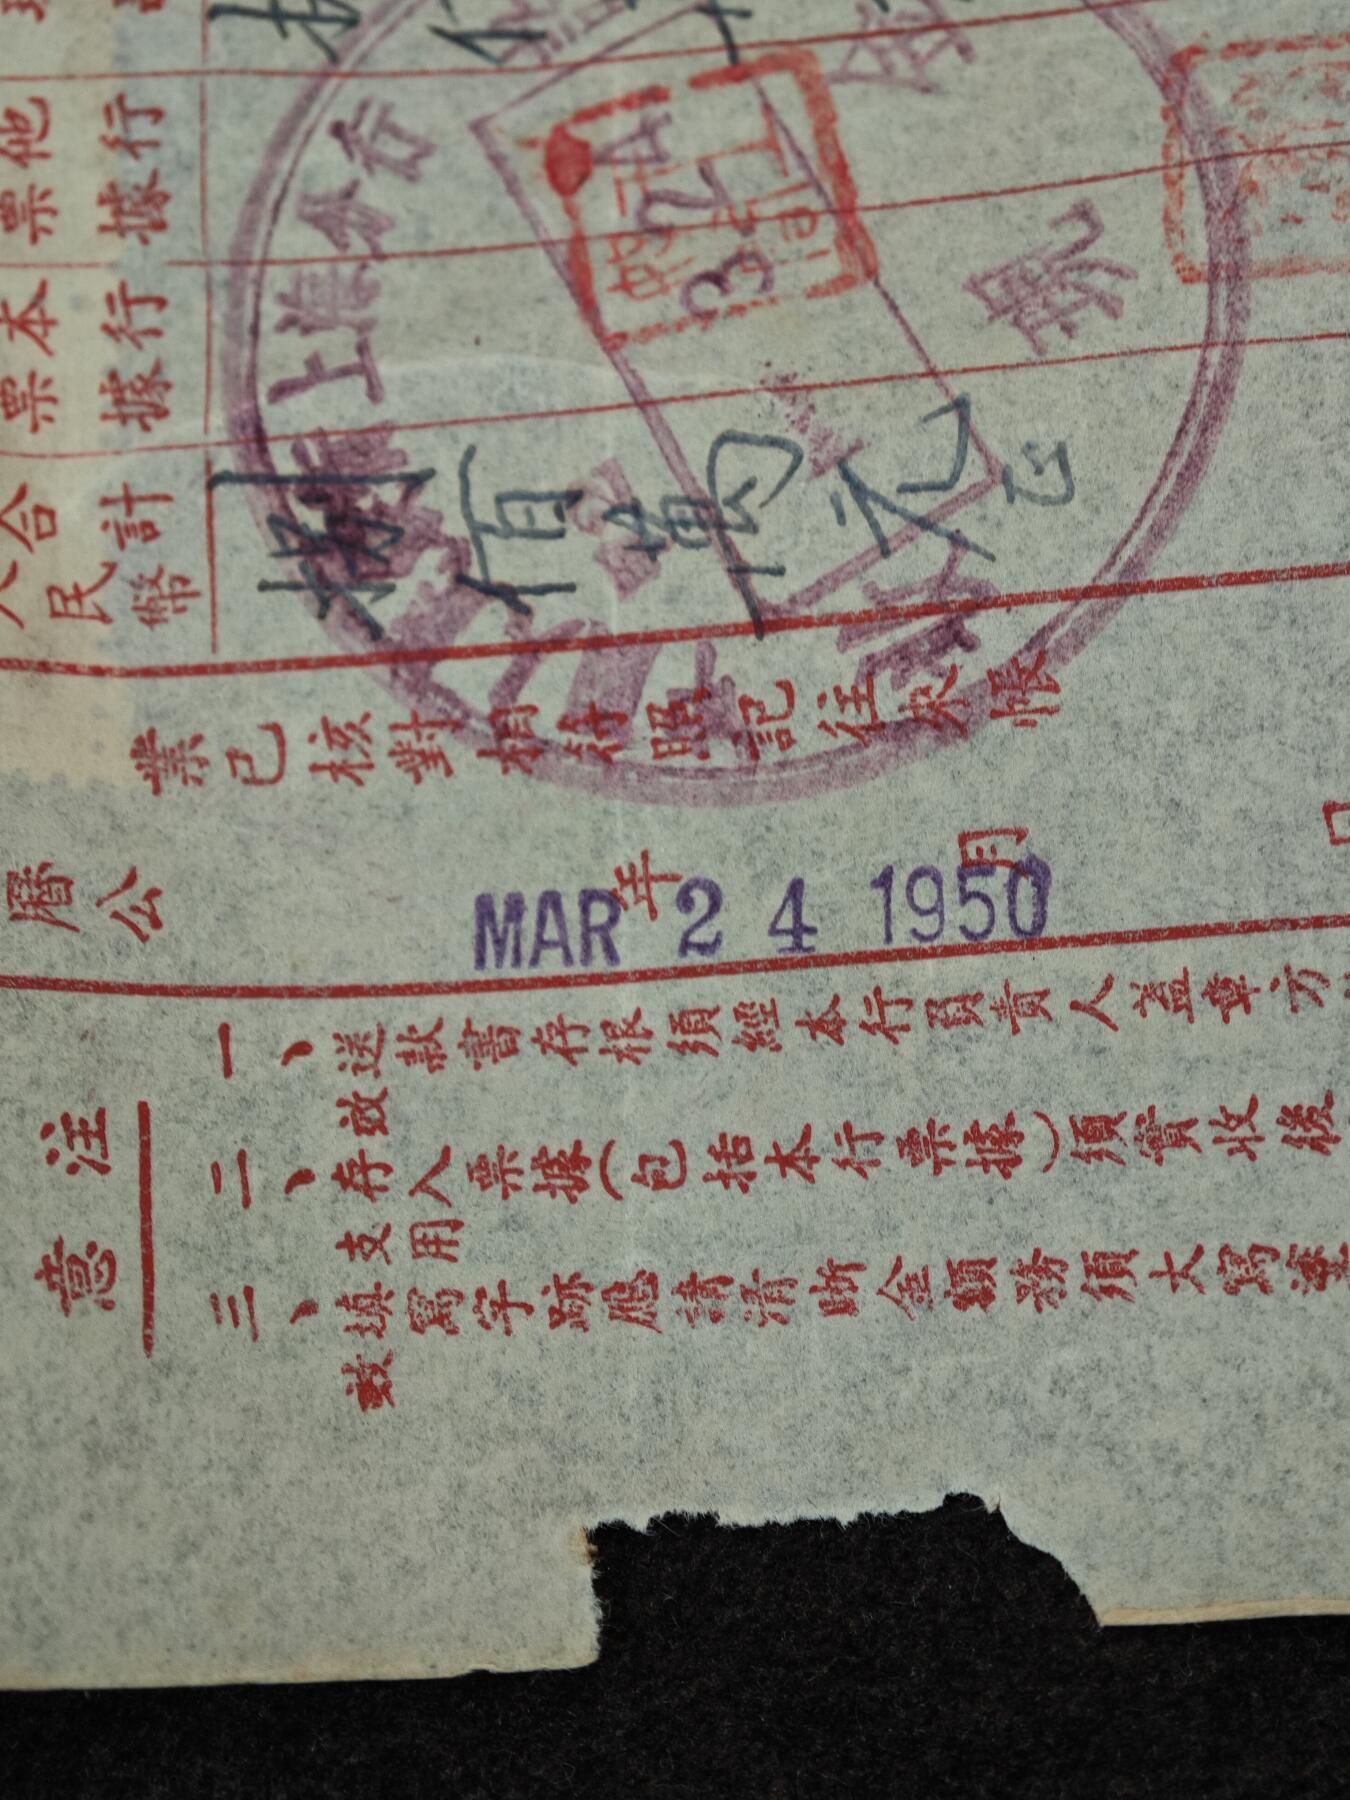 他行票據
本行票據
合計
人民幣
捌佰萬元正
業已核對相符照記往來帳
公曆 年 月 日
MAR 24 1950
注意
一、送款書存根須經本行負責人盖章方
效
二、存入票據(包括本行票據)須實收後
支用
三、填寫字跡應請清晰金額務須大寫
數
上海分行
現
324